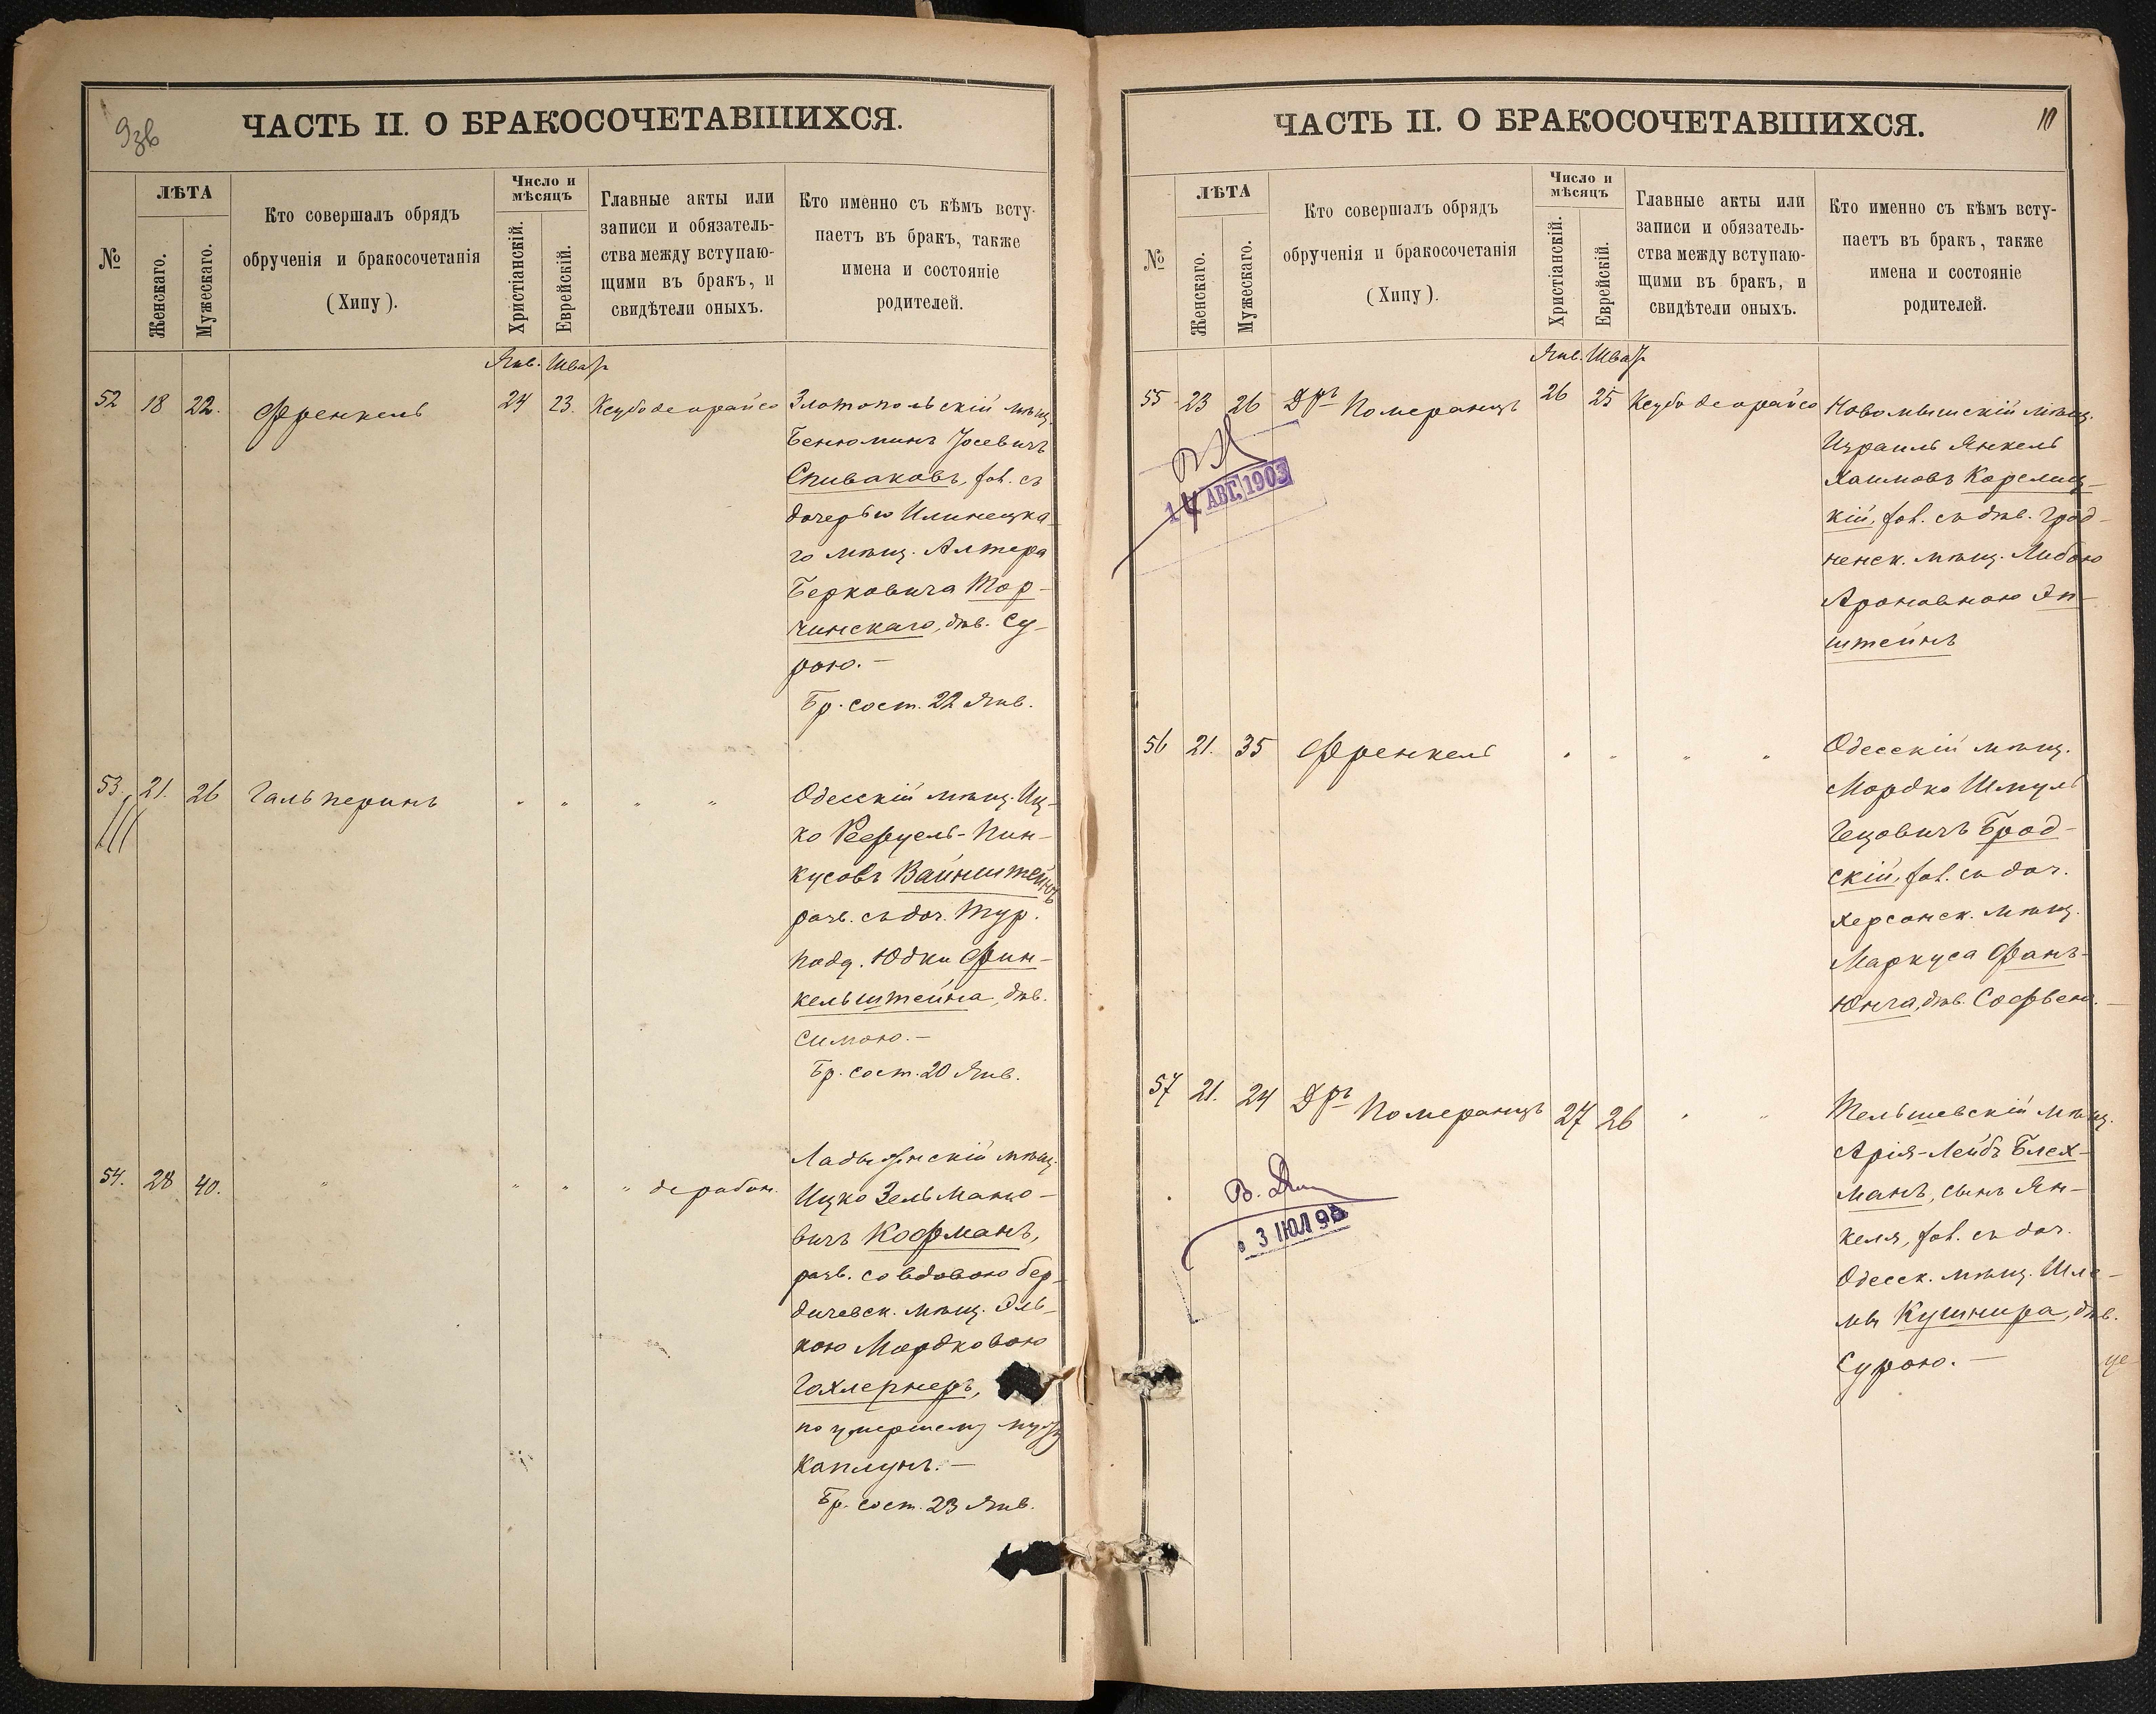 9зв
ЧАСТЬ II. О БРАКОСОЧЕТАВШИХСЯ.
№
ЛѢТА
Женскаго.
Мужескаго.
Кто совершалъ обрядъ
обрученія и бракосочетанія
(Хипу).
Число и
мѣсяцъ
Христіанскій.
Еврейскій.
Главные акты или
записи и обязатель-
ства между вступаю-
щими въ бракъ, и
свидѣтели оныхъ.
Кто именно съ кѣмъ всту-
паетъ въ бракъ, также
имена и состояніе
родителей.
Янв. Шват
52 18 22. Френкель 24 23. Ксубо деорайсо Златопольскій мѣщ.
Бенюминъ Іосевичъ
Спиваковъ, хол. съ
дочерью Илинецка-
го мѣщ. Алтера
Берковича Тор-
чинскаго, дѣв. Су-
рою.—
Бр. сост. 22 Янв.
53. 21. 26 Гальперинъ " " " " Одесскій мѣщ. Иц-
ко Рефуель-Пин-
кусовъ Вайнштейнъ
разв. съ доч. Тур.
подд. Юдки Фин-
кельштейна, дѣв.
Симою.—
Бр. сост. 20 Янв.
Ладыжинскій мѣщ.
54. 28 40. " " " " дерабон. Ицко Зельмано-
вичъ Кофманъ,
разв. со вдовою бер-
дичевск. мѣщ. Эль-
кою Мордковою
Гохлернеръ,
по умершему мужу
Каплунъ.—
Бр. сост. 23 Янв.
ЧАСТЬ II. О БРАКОСОЧЕТАВШИХСЯ.
10
№
ЛѢТА
Женскаго.
Мужескаго.
Кто совершалъ обрядъ
обрученія и бракосочетанія
(Хипу).
Число и
мѣсяцъ
Христіанскій.
Еврейскій.
Главные акты или
записи и обязатель-
ства между вступаю-
щими въ бракъ, и
свидѣтели оныхъ.
Кто именно съ кѣмъ всту-
паетъ въ бракъ, также
имена и состояніе
родителей.
Янв. Шват
55 23 26 Дръ Померанцъ 26 25 Ксубо деорайсо Новомышскій мѣщ.
Израиль Янкель
Хаимовъ Карелиц-
кій, хол. съ дѣв. Грод-
ненск. мѣщ. Либою
Ароновною Эп-
штейнъ
14 АВГ. 1903
56 21. 35 Френкель " " " " Одесскій мѣщ.
Мордко Шмуль
Гецовичъ Брод-
скій, хол. съ доч.
Херсонск. мѣщ.
Маркуса Фанъ-
Юнга, дѣв. Софьею.—
57 21. 24 Дръ Померанцъ 27 26 " " Тельшевскій мѣщ.
Арія-Лейбъ Блех-
манъ, сынъ Ян-
келя, хол. съ доч.
Одесск. мѣщ. Шле-
мы Кушнира, дѣв.
Сурою.—
3 ІЮЛ 98